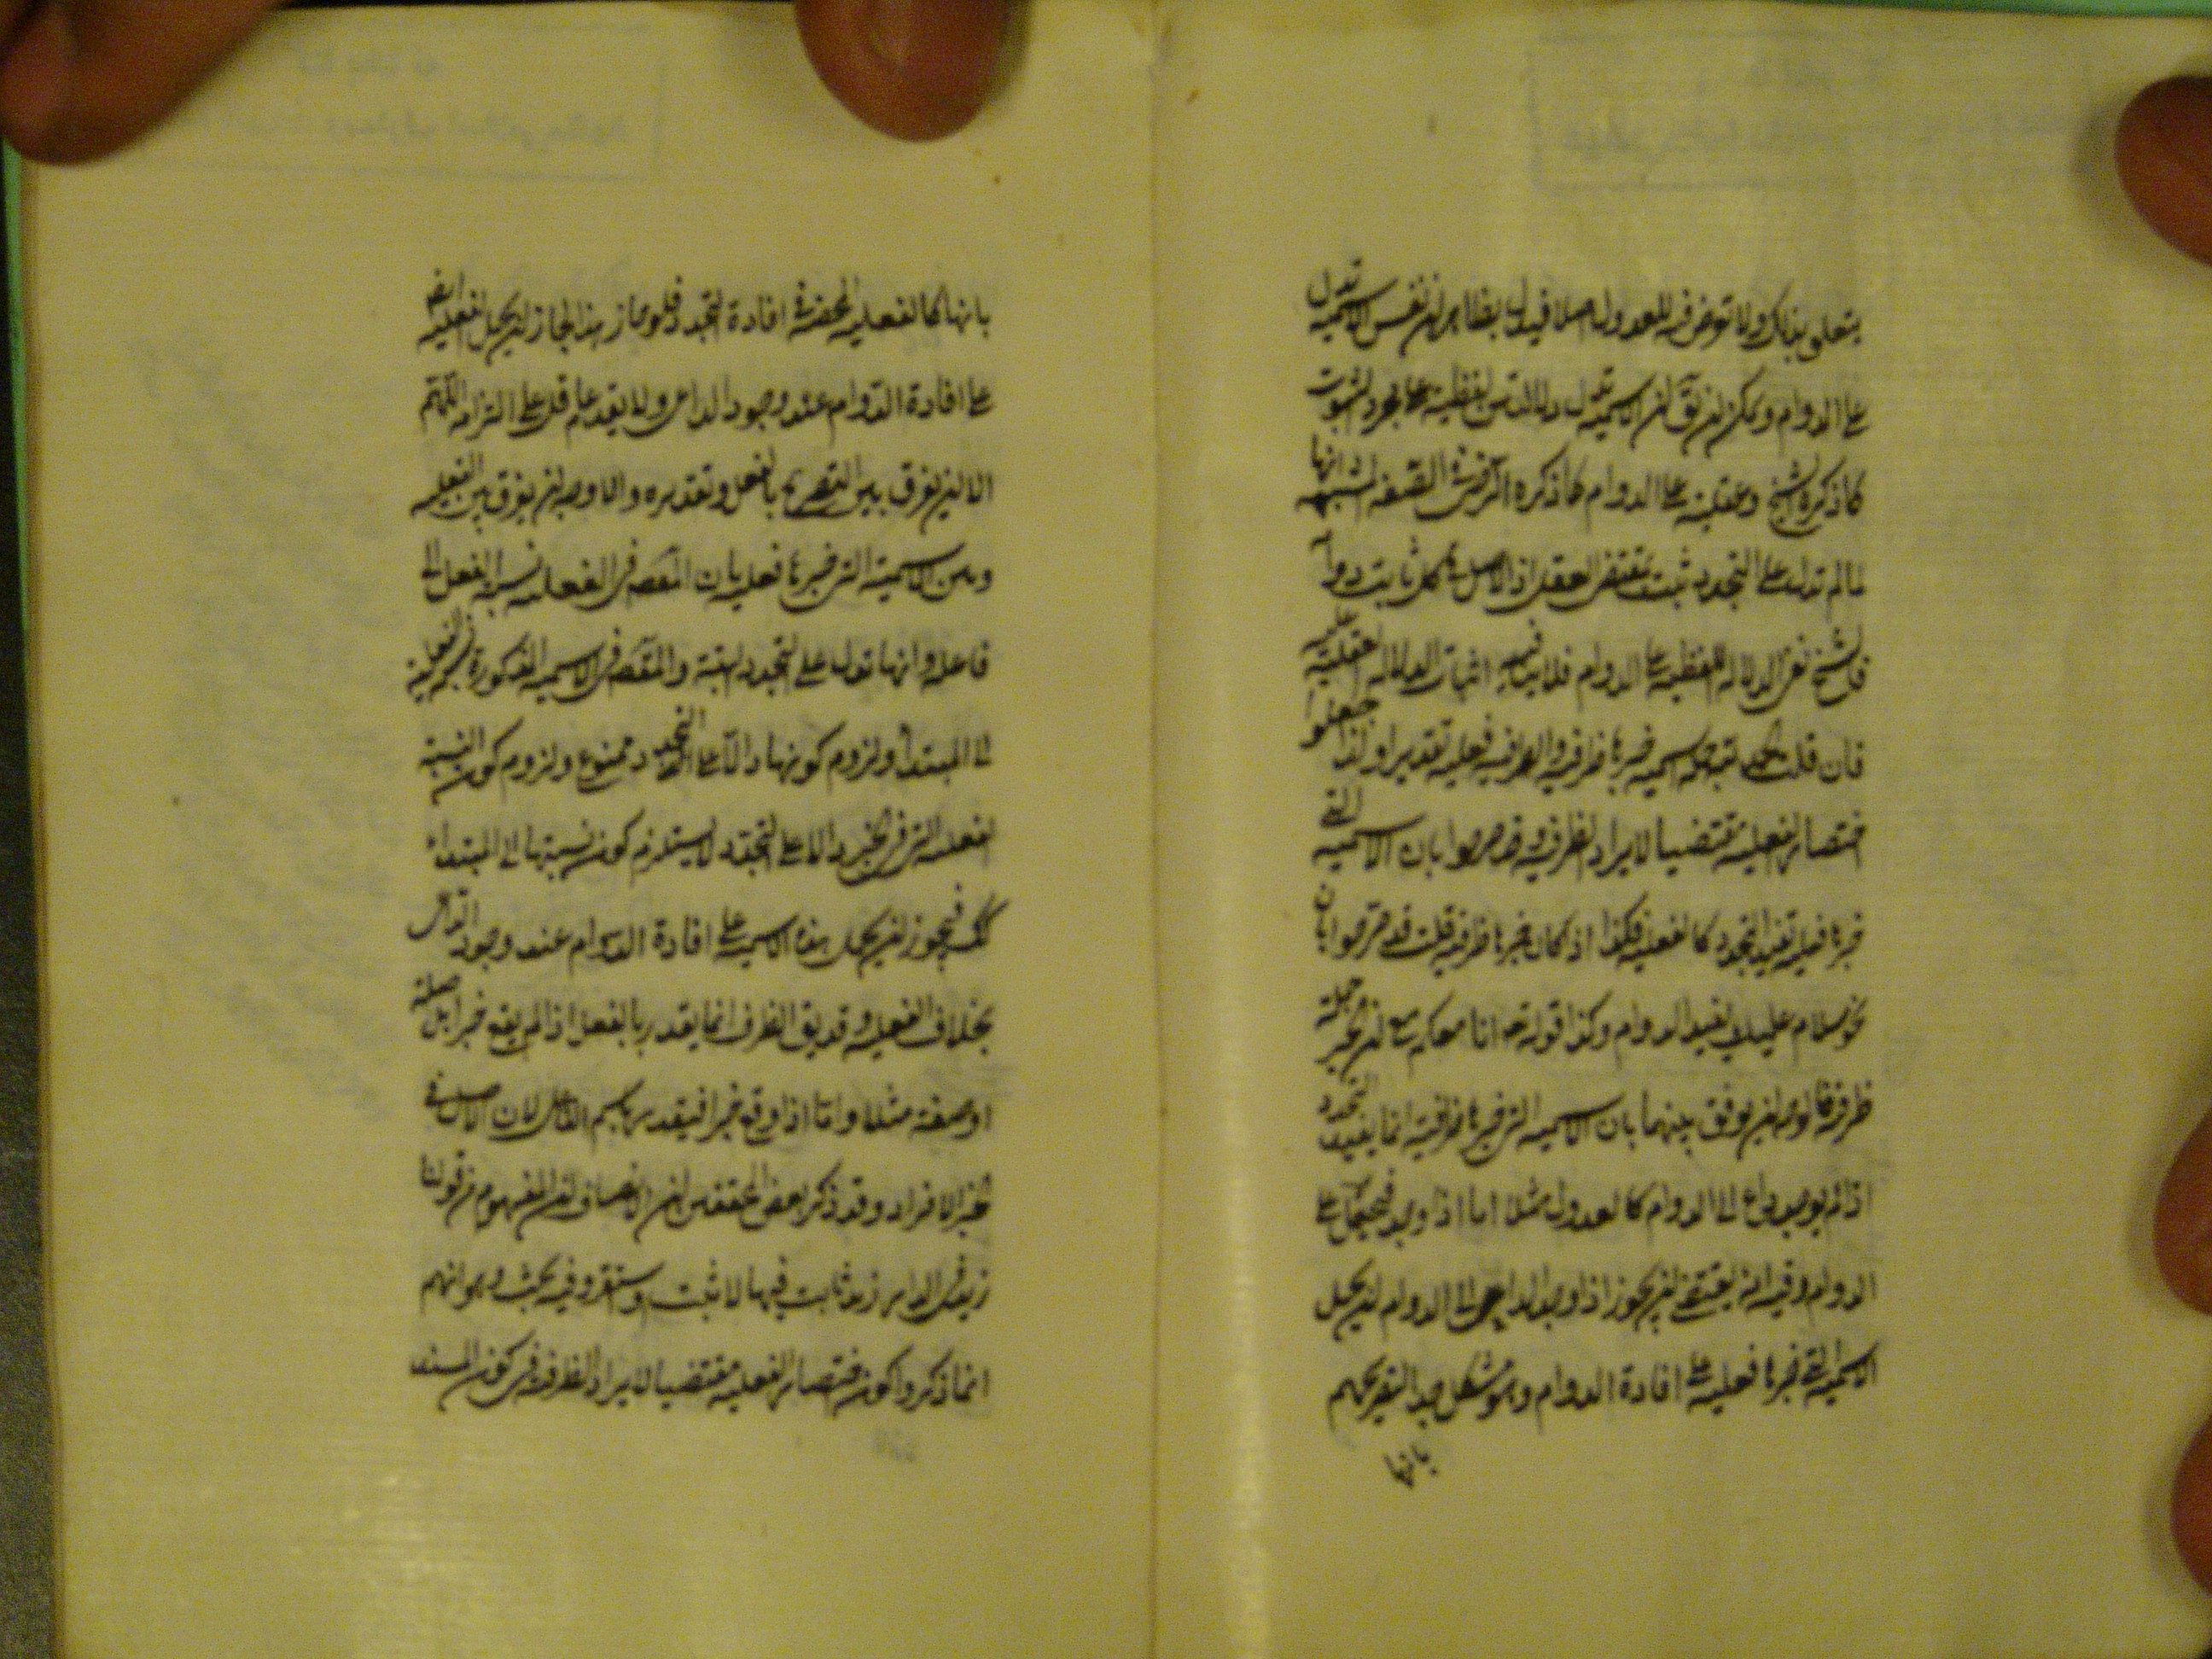 يتعلق بذلك ولا تعرض فيه للعدول اصلا فيدل بظاهره ان نفس الاسمية تدل
على الدوام ويمكن ان يق ان الاسمية تدل دلالتين لفظية على مجرد الثبوت
كما ذكره الشيخ وعقلية على الدوام كما ذكره الرضى فى الصفة المشبهة انها
لما لم تدل على التجدد ثبت بمقتضى العقل اذ الاصل فى كل ثابت دوامه
فالشيخ نفى الدلالة اللفظية على الدوام فلا ينافيه اثبات الدلالة العقلية عليه
فان قلت الحمد لله جملة اسمية خبرها ظرفية والظرفية فعلية تقديرا ولذا جعلوا
اختصار الفعلية مقتضيا لايراد الظرفية وقد صرحوا بان الاسمية التى
خبرها فعلية تفيد التجدد كالفعلية فكذا اذا كان خبرها ظرفية قلت قد صرحوا بان
نحو سلام عليك يفيد الدوام وكذا قوله تع انا معكم مع ان الخبر جملة
ظرفية فالوجه ان يوفق بينهما بان الاسمية التى خبرها ظرفية انما يفيد التجدد
اذا لم يوجد داع الى الدوام كالعدول مثلا اما اذا وجد فيحمل على
الدوام وفيه انه يقتضى ان يجوز اذا وجد الداعى الى الدوام ان يحمل
الاسمية التى خبرها فعلية على افادة الدوام وهو مشكل جدا لتصريحهم
بانها
بانها كالفعلية المحضة فى افادة التجدد فلو جاز هذا لجاز ان يحمل الفعلية ايضا
على افادة الدوام عند وجود الداعى ولا يقدم عاقل على التزامه اللهم
الا ان يفرق بين التصريح بالفعل وتقديره والاوجه ان يفرق بين الفعلية
وبين الاسمية التى خبرها فعلية بان المقصد فى الفعلية نسبة الفعل الى
فاعله وانها تدل على التجدد البتة والمقصد فى الاسمية المذكورة نسبة الفعلية
الى المبتدأ ولزوم كونها دالة على التجدد ممنوع ولزوم كون النسبة
الفعلية التى فى الخبر دالا على التجدد لا يستلزم كون نسبتها الى المبتدأ
كك فيجوز ان يحمل هذه الاسمية على افادة الدوام عند وجود الداعى
بخلاف الفعلية وقد يق الظرف انما يقدر بالفعل اذا لم يقع خبرا بل صلة
او صفة مثلا واما اذا وقع خبرا فيقدر باسم الفاعل لان الاصل فى
الخبر الافراد وقد ذكر بعض المحققين ان الانصاف ان المفهوم من قولنا
زيد فى الدار زيد ثابت فيها لا ثبت واستقر وفيه بحث وهو انهم
انما ذكروا كون اختصار الفعلية مقتضيا لايراد الظرفية فى كون المسند